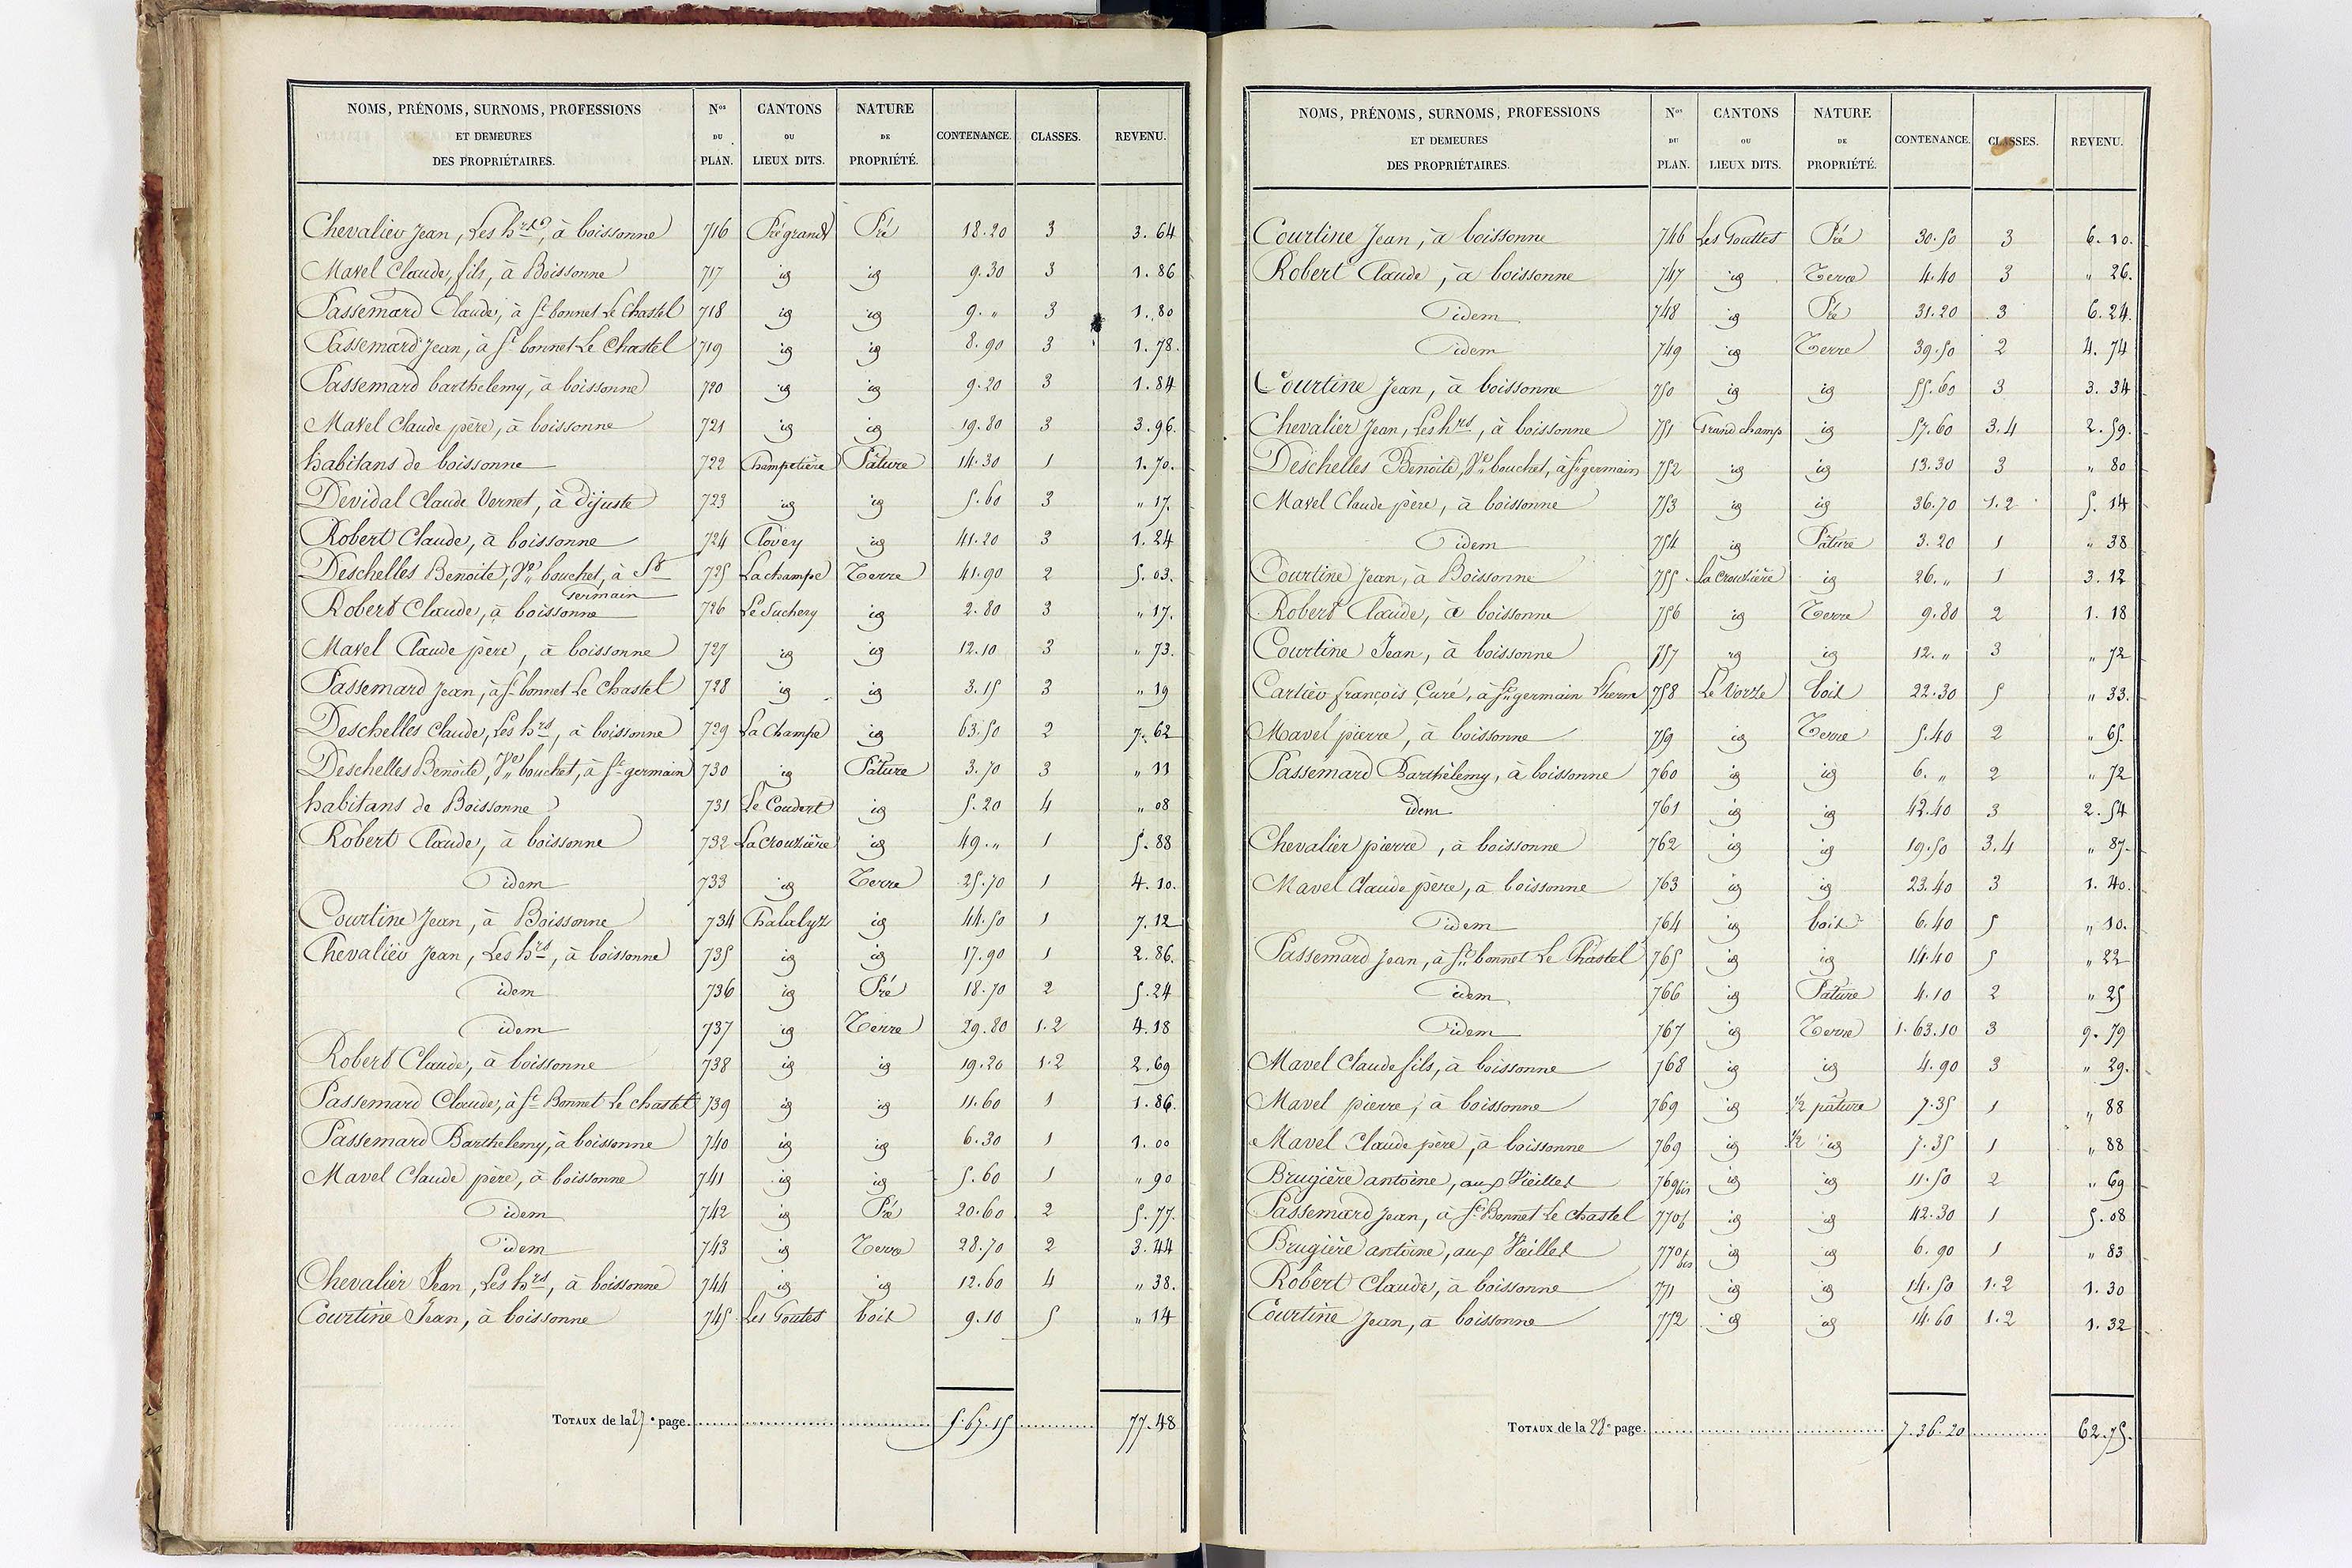 NOMS, PRÉNOMS, SURNOMS, PROFESSIONS ET DEMEURES DES PROPRIÉTAIRES. Nos DU PLAN. CANTONS OU LIEUX DITS. NATURE DE PROPRIÉTÉ. CONTENANCE. CLASSES. REVENU.
Chevalier Jean, Les hrs, à boissonne 716 Pré grand Pré 18.20 3 3.64
Mavel Claude, fils, à Boissonne 717 id id 9.30 3 1.86
Passemard Claude, à St bonnet Le Chastel 718 id id 9. " 3 1.80
Passemard Jean, à St bonnet Le Chastel 719 id id 8.90 3 1.78.
Passemard barthelemy, à boissonne 720 id id 9.20 3 1.84
Mavel Claude père, à boissonne 721 id id 19.80 3 3.96.
habitans de boissonne 722 Champetière Pâture 14.30 1 1.70.
Devidal Claude Vernet, à Dijuste 723 id id 5.60 3 " 17.
Robert Claude, à boissonne 724 Clovey id 41.20 3 1.24
Deschelles Benoite, Ve bouchet, à St germain 725 La champe Terre 41.90 2 5.03.
Robert Claude, à boissonne 726 Le Suchery id 2.80 3 " 17.
Mavel Claude père, à boissonne 727 id id 12.10 3 " 73.
Passemard Jean, à St bonnet Le Chastel 728 id id 3.15 3 " 19
Deschelles Claude, Les hrs, à boissonne 729 La Champe id 63.50 2 7.62
Deschelles Benoite, Ve bouchet, à St germain 730 id Pâture 3.70 3 " 11
habitans de Boissonne 731 Le Coudert id 5.20 4 " 08
Robert Claude, à boissonne 732 La Crouzière id 49. " 1 5.88
idem 733 id Terre 25.70 1 4.10.
Courtine Jean, à Boissonne 734 id 44.50 1 7.12
Chevalier Jean, Les hrs, à boissonne 735 id id 17.90 1 2.86.
idem 736 id Pré 18.70 2 5.24
idem 737 id Terre 29.80 1.2 4.18
Robert Claude, à boissonne 738 id id 19.20 1.2 2.69
Passemard Claude, à St Bonnet Le chastel 739 id id 11.60 1 1.86.
Passemard Barthelemy, à boissonne 740 id id 6.30 1 1.00
Mavel Claude père, à boissonne 741 id id 5.60 1 " 90
idem 742 id Pré 20.60 2 5.77.
idem 743 id Terre 28.70 2 3.44
Chevalier Jean, Les hrs, à boissonne 744 id id 12.60 4 " 38.
Courtine Jean, à boissonne 745 Les Goutes bois 9.10 5 " 14
TOTAUX de la 27e page. 5.67.15 77.48
NOMS, PRÉNOMS, SURNOMS, PROFESSIONS ET DEMEURES DES PROPRIÉTAIRES. Nos DU PLAN. CANTONS OU LIEUX DITS. NATURE DE PROPRIÉTÉ. CONTENANCE. CLASSES. REVENU.
Courtine Jean, à boissonne 746 Les Gouttes Pré 30.50 3 6.10.
Robert Claude, à boissonne 747 id Terre 4.40 3 " 26.
idem 748 id Pré 31.20 3 6.24.
idem 749 id Terre 39.50 2 4.74
Courtine Jean, à boissonne 750 id id 55.60 3 3.34
Chevalier Jean, Les hrs, à boissonne 751 Grand champ id 57.60 3.4 2.59.
Deschelles Benoite, Ve bouchet, à St germain 752 id id 13.30 3 " 80
Mavel Claude père, à boissonne 753 id id 36.70 1.2 5.14
idem 754 id Pâture 3.20 1 " 38
Courtine Jean, à Boissonne 755 La crouzière id 26. " 1 3.12
Robert Claude, à boissonne 756 id Terre 9.80 2 1.18
Courtine Jean, à boissonne 757 id id 12. " 3 " 72
Cartier françois Curé, à St germain L'herm 758 Le Vorze bois 22.30 5 " 33.
Mavel pierre, à boissonne 759 id Terre 5.40 2 " 65.
Passemard Barthélemy, à boissonne 760 id id 6. " 2 " 72
idem 761 id id 42.40 3 2.54
Chevalier pierre, à boissonne 762 id id 19.50 3.4 " 87.
Mavel Claude père, à boissonne 763 id id 23.40 3 1.40.
idem 764 id bois 6.40 5 " 10.
Passemard Jean, à St bonnet Le Chastel 765 id id 14.40 5 " 22
idem 766 id Pâture 4.10 2 " 25
idem 767 id Terre 1.63.10 3 9.79
Mavel Claude fils, à boissonne 768 id id 4.90 3 " 29.
Mavel pierre, à boissonne 769 id 1/2 pâture 7.35 1 " 88
Mavel Claude père, à boissonne 769 id 1/2 id 7.35 1 " 88
Brugière antoine, aux Vieilles 769 bis id id 11.50 2 " 69
Passemard Jean, à St Bonnet Le Chastel 770 id id 42.30 1 5.08
Brugière antoine, aux Vieilles 770 bis id id 6.90 1 " 83
Robert Claude, à boissonne 771 id id 14.50 1.2 1.30
Courtine Jean, à boissonne 772 id id 14.60 1.2 1.32
TOTAUX de la 28e page. 7.36.20 62.75.